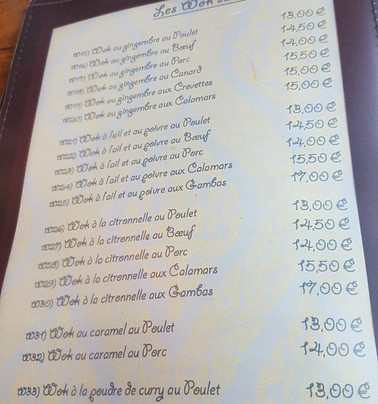 Les Wok
W15) Wok au gingembre au Poulet 13,00 €
W16) Wok au gingembre au Bœuf 14,50 €
W17) Wok au gingembre au Porc 14,00 €
W18) Wok au gingembre au Canard 15,50 €
W19) Wok au gingembre aux Crevettes 15,00 €
W20) Wok au gingembre aux Calamars 15,00 €
W21) Wok à l'ail et au poivre au Poulet 13,00 €
W22) Wok à l'ail et au poivre au Bœuf 14,50 €
W23) Wok à l'ail et au poivre au Porc 14,00 €
W24) Wok à l'ail et au poivre aux Calamars 15,50 €
W25) Wok à l'ail et au poivre aux Gambas 17,00 €
W26) Wok à la citronnelle au Poulet 13,00 €
W27) Wok à la citronnelle au Bœuf 14,50 €
W28) Wok à la citronnelle au Porc 14,00 €
W29) Wok à la citronnelle aux Calamars 15,50 €
W30) Wok à la citronnelle aux Gambas 17,00 €
W31) Wok au caramel au Poulet 13,00 €
W32) Wok au caramel au Porc 14,00 €
W33) Wok à la poudre de curry au Poulet 13,00 €